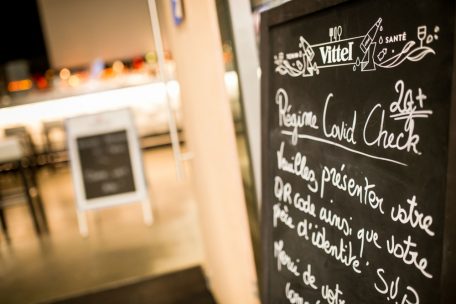 Vittel
SANTÉ
2G+
Régime Covid Check
Veuillez présenter votre
QR code ainsi que votre
pièce d'identité S.V.P
Merci de votre